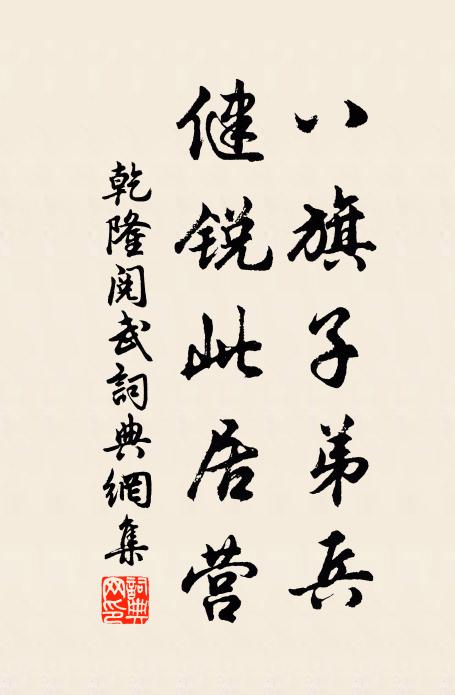 八旗子弟兵
健锐此居营
乾隆阅武詞典網集
詞典网印